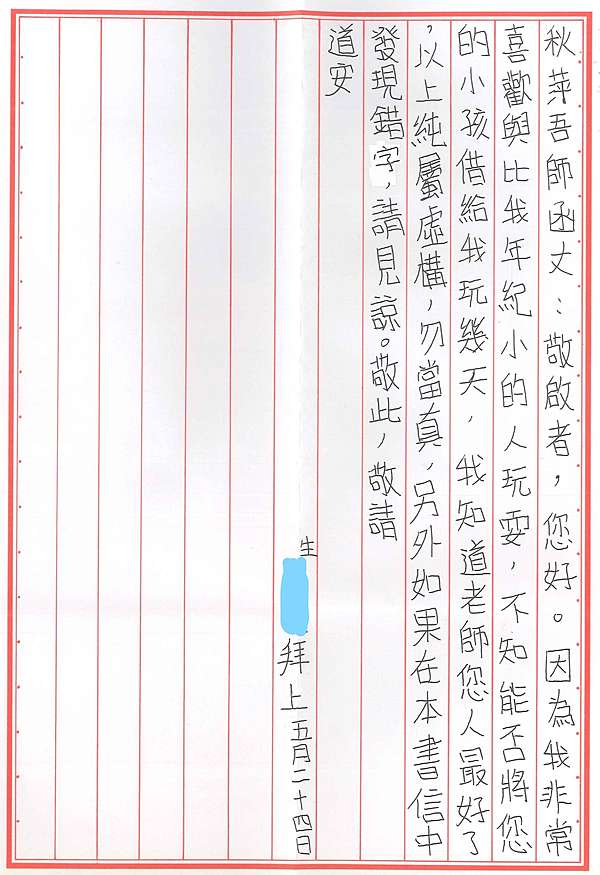 秋萍吾師函丈：敬啟者，您好。因為我非常
喜歡與比我年紀小的人玩耍，不知能否將您
的小孩借給我玩幾天，我知道老師您人最好了
，以上純屬虛構，勿當真，另外如果在本書信中
發現錯字，請見諒。敬此，敬請
道安
生
拜上五月二十四日